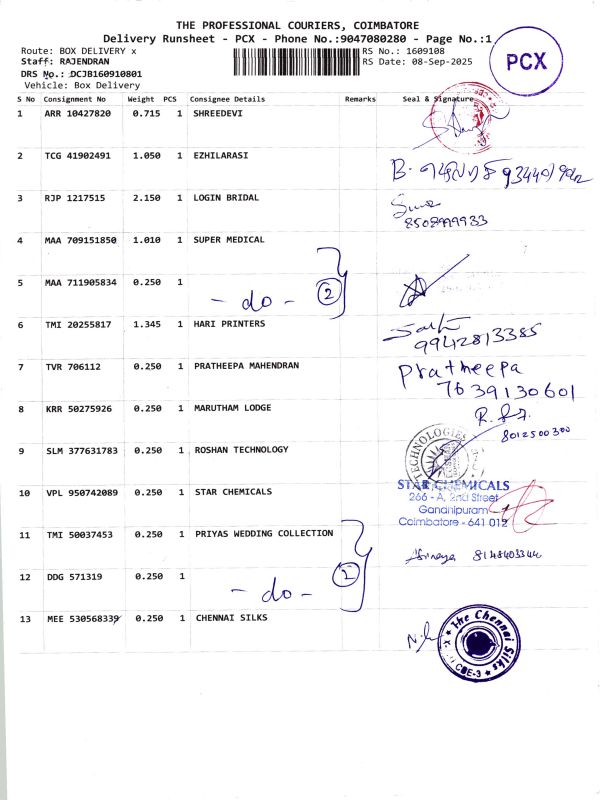 THE PROFESSIONAL COURIERS, COIMBATORE
Delivery Runsheet - PCX - Phone No.:9047080280 - Page No.:1
PCX
Route: BOX DELIVERY x
RS No.: 1609108
Staff: RAJENDRAN
RS Date: 08-Sep-2025
DRS No.: DCJB160910801
Vehicle: Box Delivery
S No Consignment No Weight PCS Consignee Details Remarks Seal & Signature
1 ARR 10427820 0.715 1 SHREEDEVI
2 TCG 41902491 1.050 1 EZHILARASI
B.
3 RJP 1217515 2.150 1 LOGIN BRIDAL
4 MAA 709151850 1.010 1 SUPER MEDICAL
5 MAA 711905834 0.250 1
- do - 2
6 TMI 20255817 1.345 1 HARI PRINTERS
9942813385
7 TVR 706112 0.250 1 PRATHEEPA MAHENDRAN Pratheepa
7639130601
8 KRR 50275926 0.250 1 MARUTHAM LODGE
8012500300
9 SLM 377631783 0.250 1 ROSHAN TECHNOLOGY
TECHNOLOGIES
10 VPL 950742089 0.250 1 STAR CHEMICALS
STAR CHEMICALS
266 - A, 2nd Street
Gandhipuram
Coimbatore - 641 012
11 TMI 50037453 0.250 1 PRIYAS WEDDING COLLECTION
12 DDG 571319 0.250 1
- do - 2
13 MEE 530568339 0.250 1 CHENNAI SILKS
The Chennai Silks
CBE-3